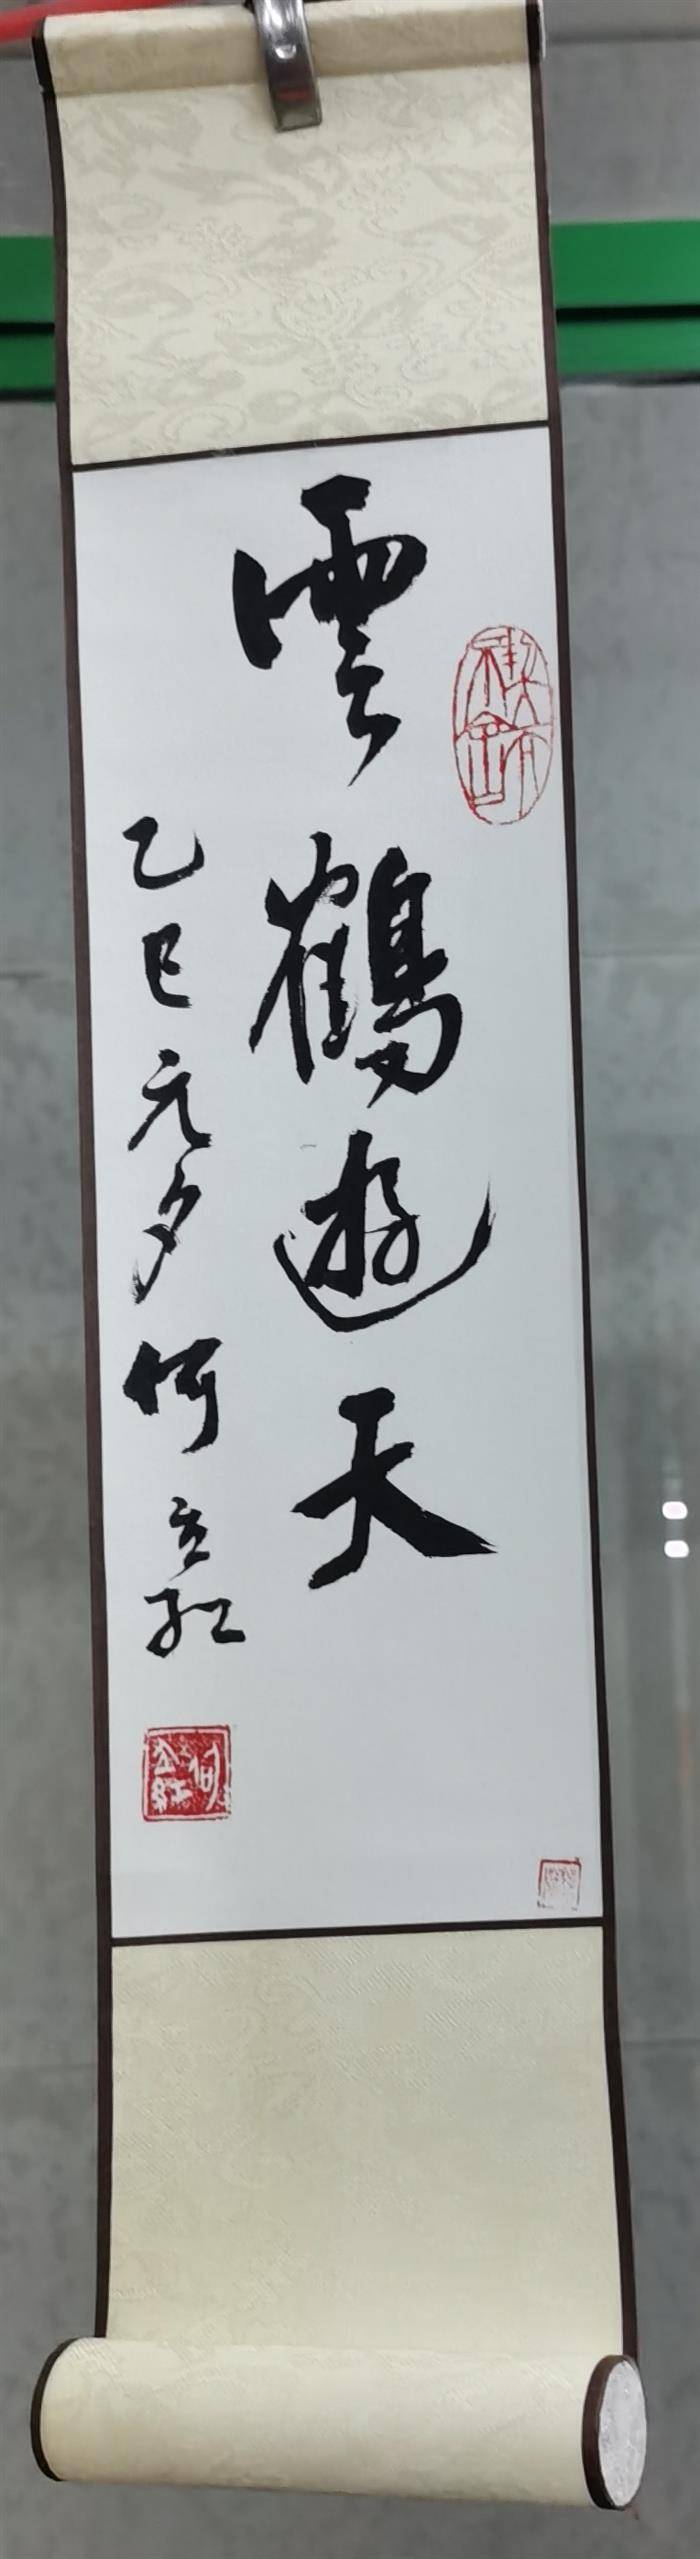 雲鶴遊天
乙巳元夕何立紅
何立紅